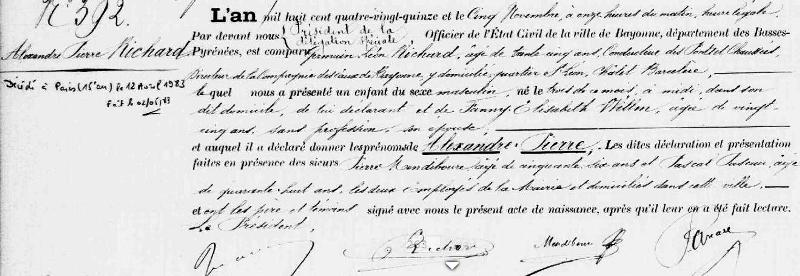 N° 392.
Alexandre Pierre Richard
Décédé à Paris (15e arr) le 12 Avril 1983
Fait le
L'an mil huit cent quatre-vingt-quinze et le Cinq Novembre, à onze heures du matin, heure légale
Par devant nous Président de la
délégation spéciale, Officier de l'État Civil de la ville de Bayonne, département des Basses-
Pyrénées, est comparu Léon Richard, âgé de trente cinq ans, Conducteur des Ponts et Chaussées
Directeur de la Compagnie des eaux de Bayonne, y domicilié, quartier St Léon,
lequel nous a présenté un enfant du sexe masculin, né le trois de ce mois, à midi, dans son
dit domicile, de lui déclarant et de Fanny Elisabeth âgée de vingt-
cinq ans, sans profession, son épouse,
et auquel il a déclaré donner les prénoms de Alexandre Pierre. Les dites déclaration et présentation
faites en présence des sieurs Pierre Mendiboure âgé de cinquante six ans et Pascal âgé
de quarante huit ans, les deux employés de la Mairie et domiciliés dans cette ville.
et ont les père et témoins signé avec nous le présent acte de naissance, après qu'il leur en a été fait lecture.
Le Président,
Richard Mendiboure